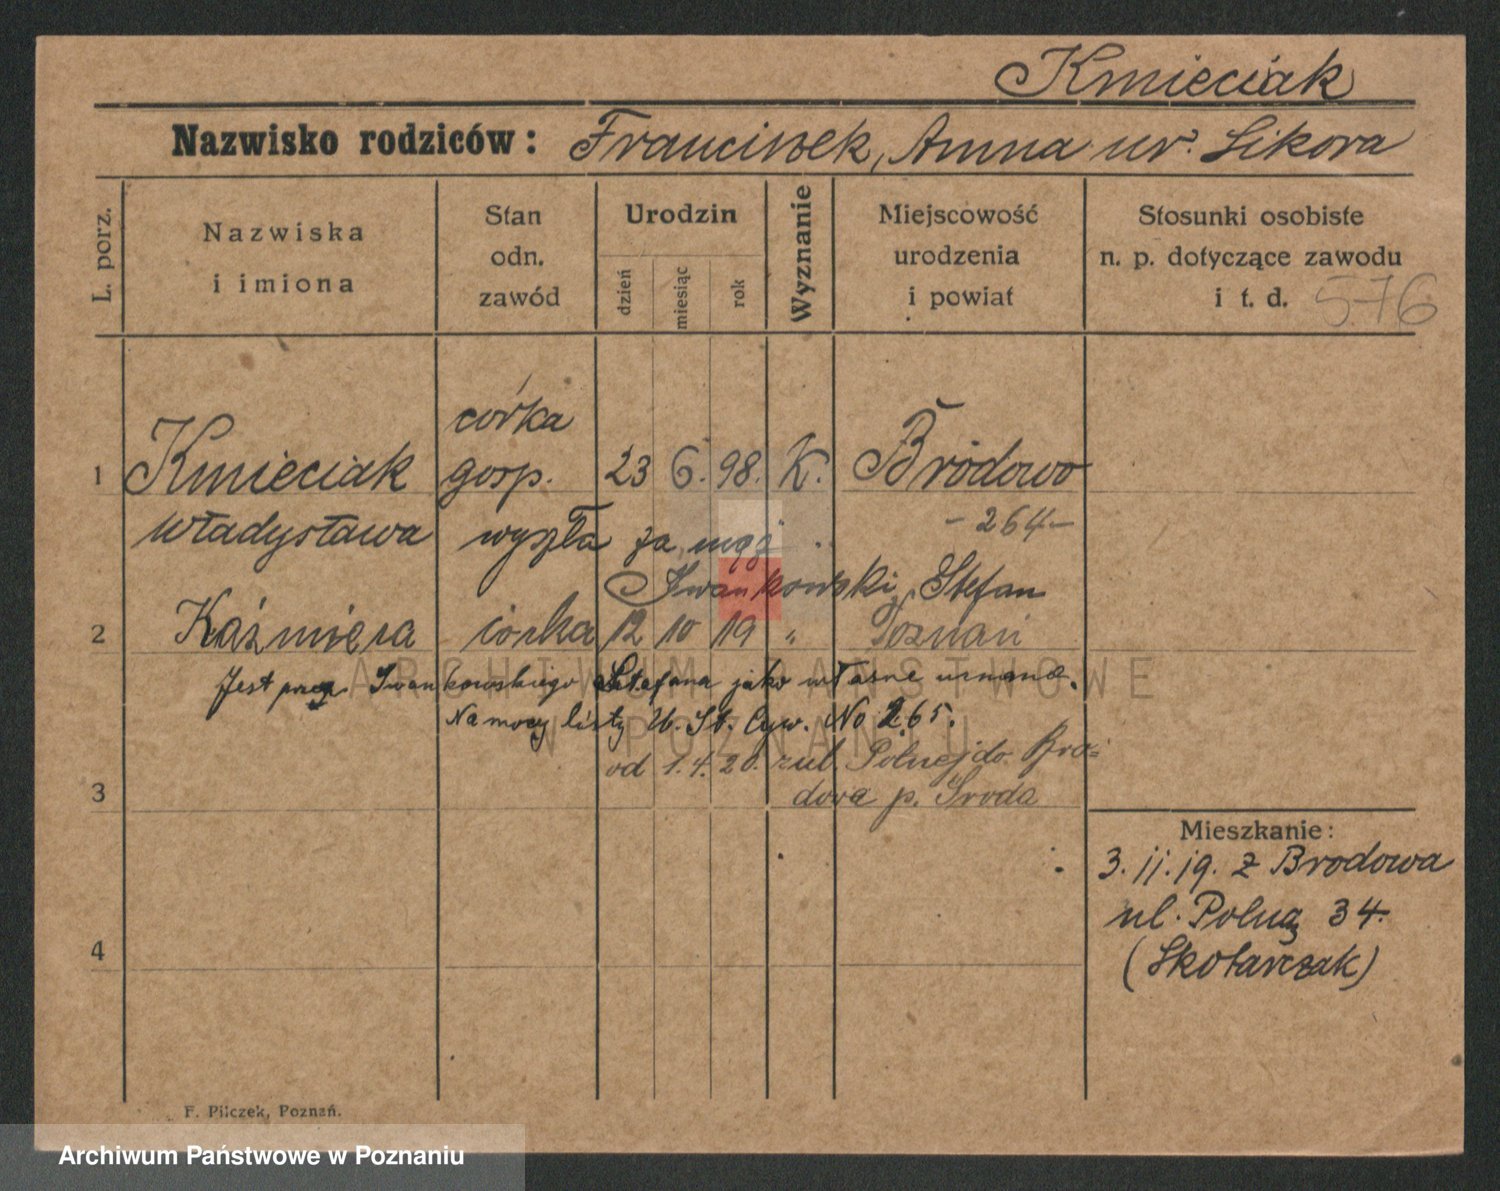 Kmieciak
Nazwisko rodziców: Franciszek, Anna ur. Sikora
L. porz.
Nazwiska
i imiona
Stan
odn.
zawód
Urodzin
dzień
miesiąc
rok
Wyznanie
Miejscowość
urodzenia
i powiat
Stosunki osobiste
n. p. dotyczące zawodu
i t. d. 576
córka
1 Kmieciak gosp. 23 6. 98. K. Bródowo
Władysława wyszła za mąż - 264 -
Iwankowski, Stefan
2 Kaźmiera córka 12 10 19 " Poznań
Jest przez Iwankowskiego Stefana jako własne uznane.
Na mocy listy U. St. Cyw. No 265.
od 1.4.20. z ul. Polnej do Bro-
3 dowa p. Środa
Mieszkanie:
3. 11. 19. z Brodowa
ul. Polna 34.
(Skotarczak)
4
F. Pilczek, Poznań.
ARCHIWUM PAŃSTWOWE
W POZNANIU
Archiwum Państwowe w Poznaniu